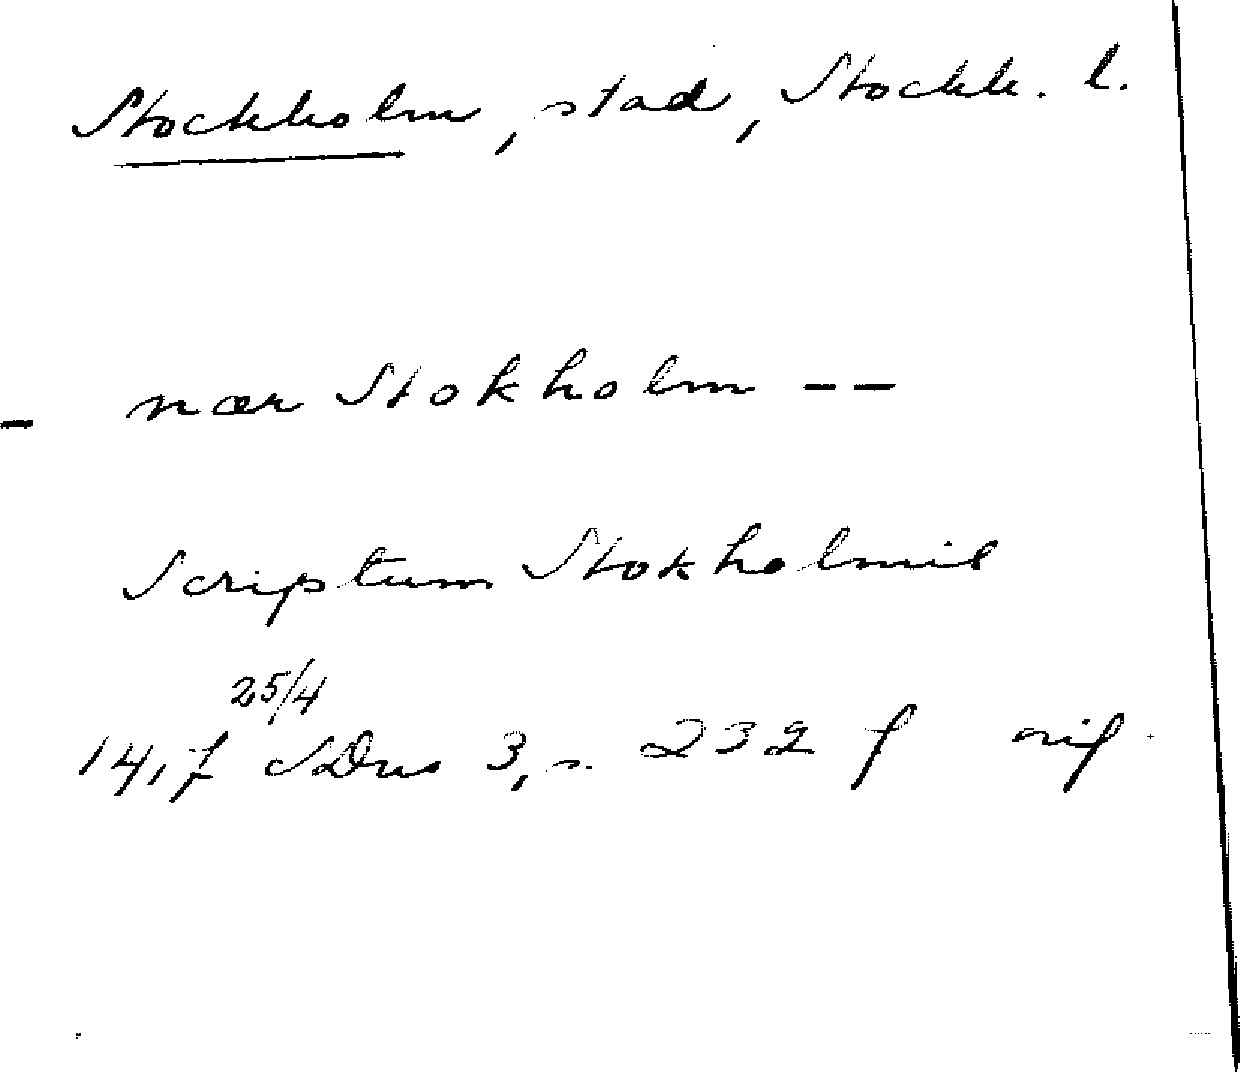 Stockholm, stad, Stockh. l.
- nær Stokholm - -
Scriptum Stokholmis
25/4
1417 SDns 3, s. 232 f